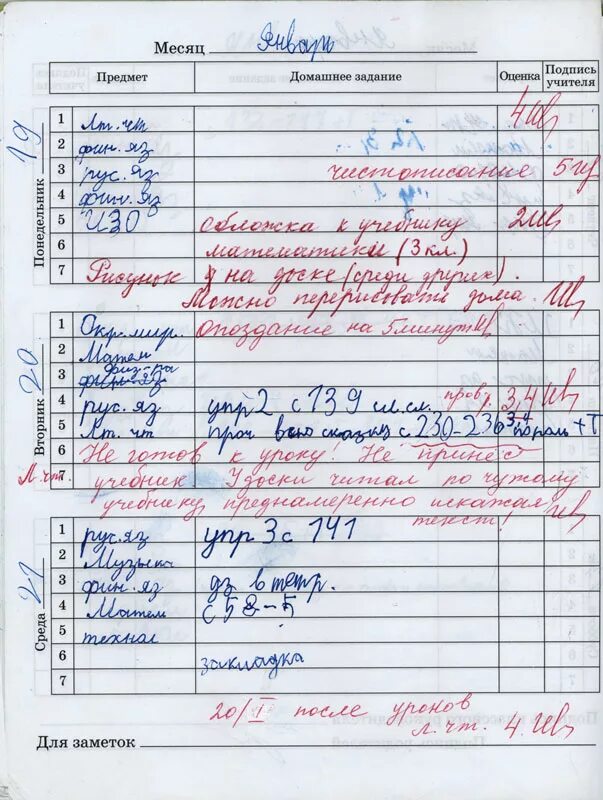 Месяц Январь
Предмет Домашнее задание Оценка Подпись учителя
Понедельник 19
1 Лт. чт 4
2 фин. яз
3 рус. яз чистописание 5
4 фин. яз
5 ИЗО обложка к учебнику 2
6 математики (3 кл.)
7 Рисунок на доске (среди других).
Можно перерисовать дома.
Вторник 20
1 Окр. мир. Опоздание на 5 минут
2 Матем
3 физ-ра
4 рус. яз упр 2 с 139 сл.сл. пров. 3,4
5 Лт. чт проч всю сказку с 230-236 по роль + Т 3,4
6 Не готов к уроку! Не принёс
Л. чт. 7 учебник У доски читал по чужому
учебнику, преднамеренно искажал
текст!
Среда 21
1 рус. яз упр 3 с 141
2 Музыка
3 фин. яз дз в тетр.
4 Матем с 58-5
5 технол
6 закладка
7
20/I после уроков
Л. чт. 4
Для заметок